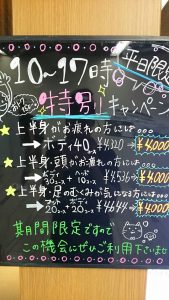 平日限定
10～17時
特別!キャンペーン
★上半身がお疲れの方には…
→ボディ40 ¥4320→¥4,000
★上半身・頭がお疲れの方には…
→ボディ30コース+ヘッド10コース ¥4536→¥4,000
★上半身・足のむくみが気になる方には…
→フット20コース+ボディ20コース ¥4644→¥4,000
期間限定ですので
この機会にぜひご利用下さいませ